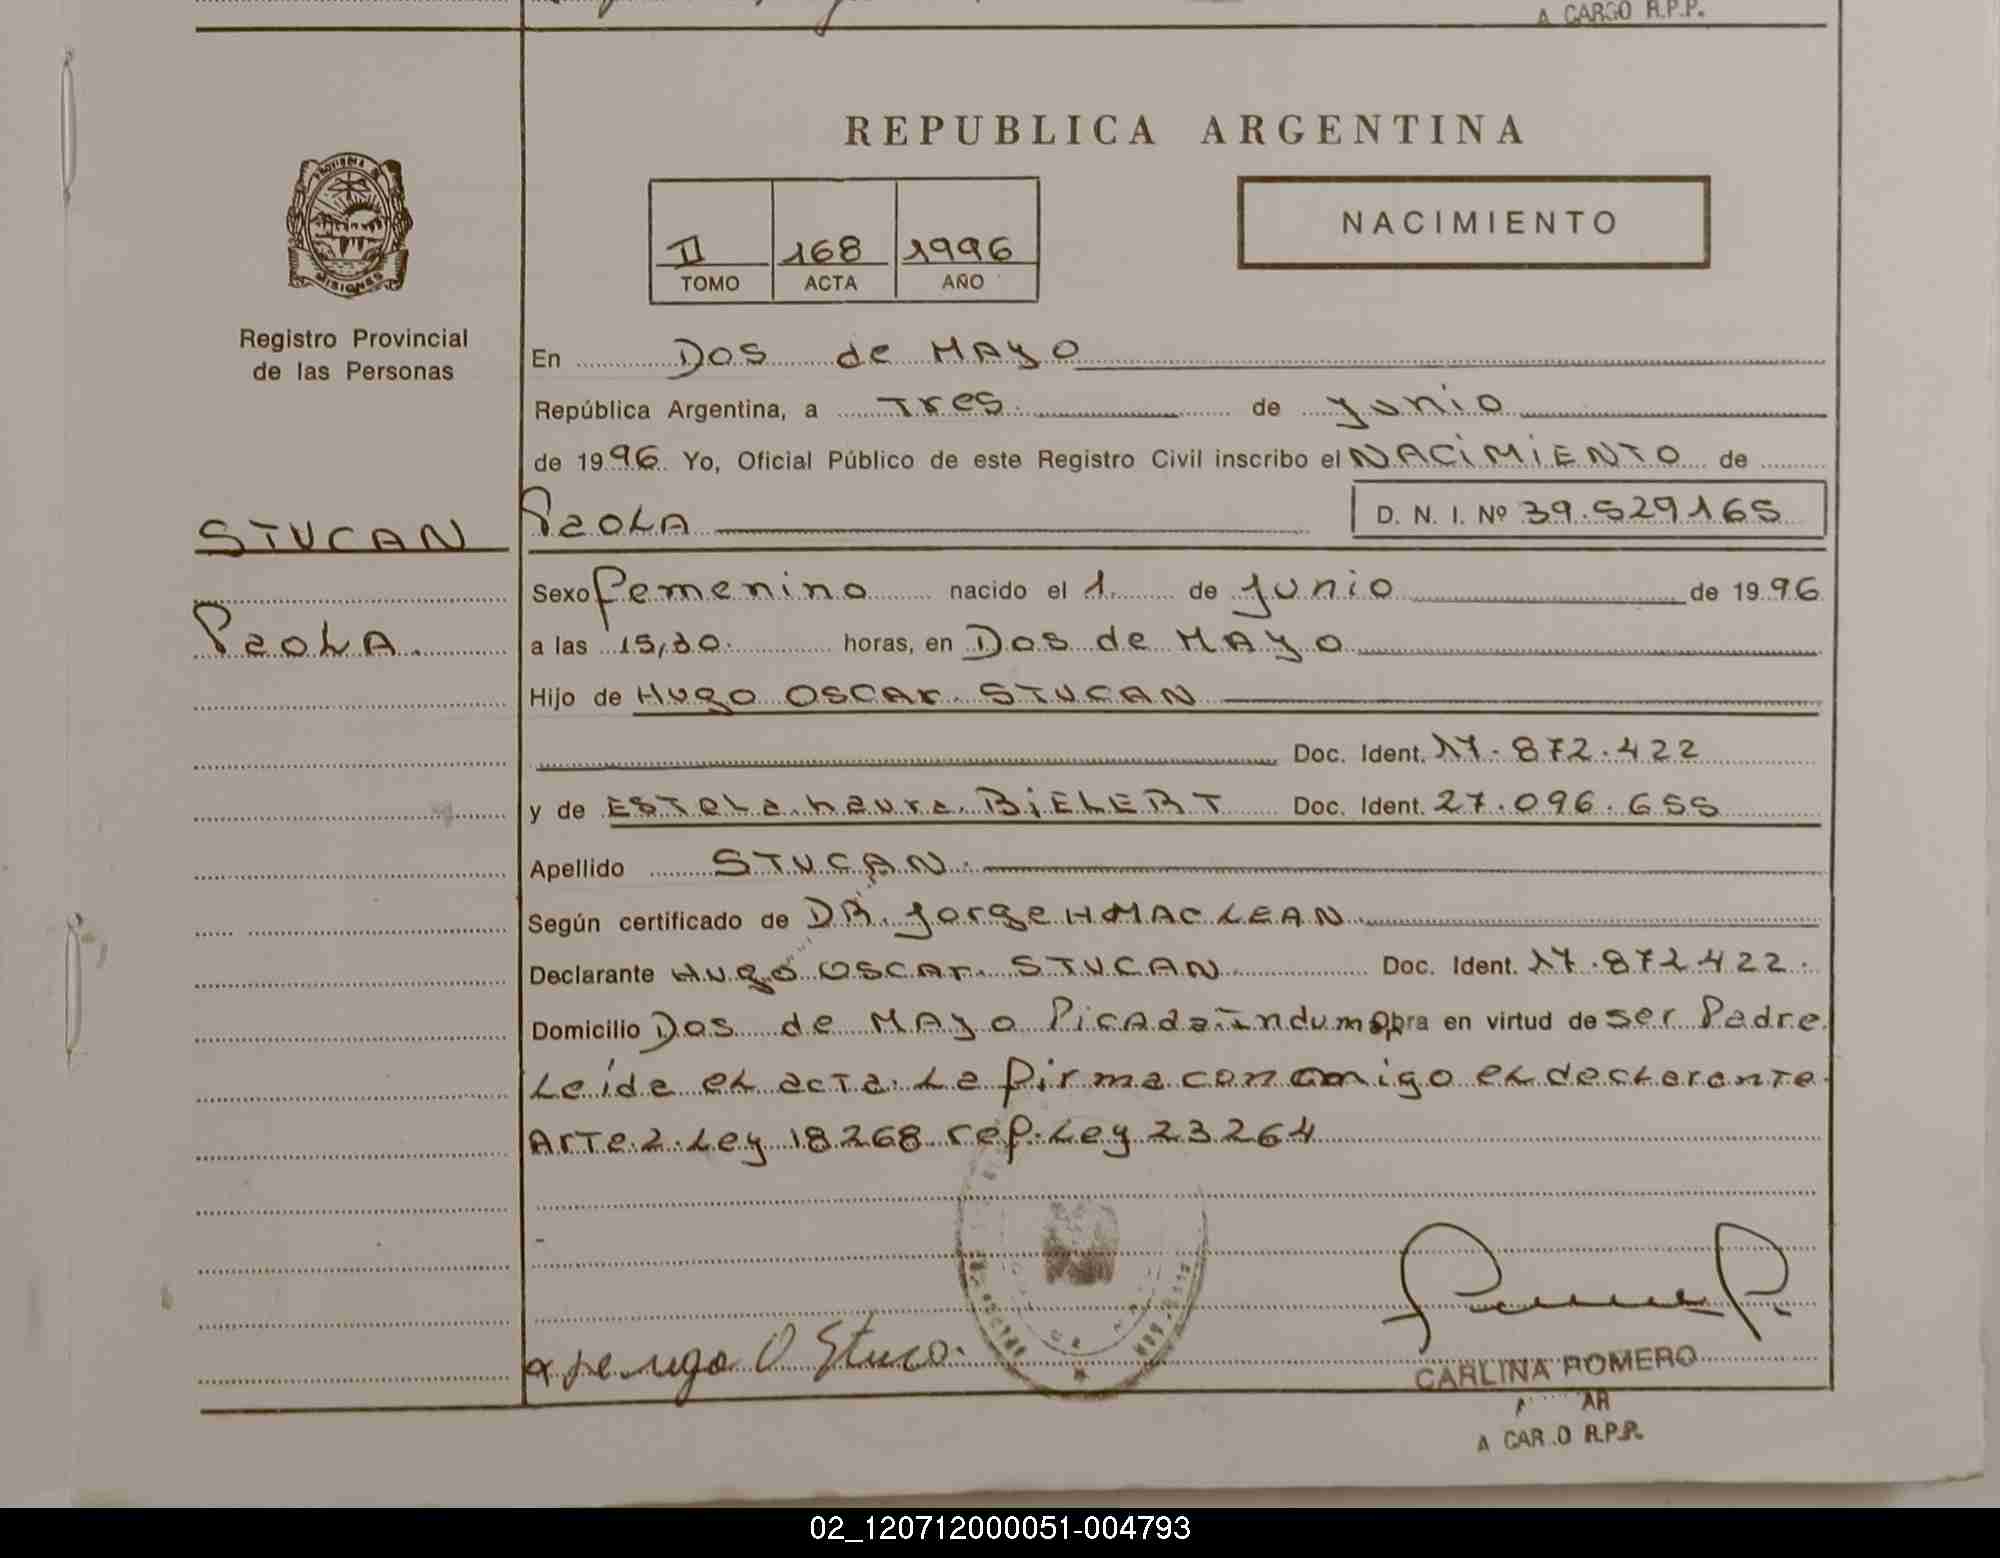 A CARGO R.P.P.
REPUBLICA ARGENTINA
PROVINCIA DE
MISIONES
Registro Provincial
de las Personas
II 168 1996
TOMO ACTA AÑO
NACIMIENTO
En Dos de MAyo
República Argentina, a Tres de junio
de 1996 Yo, Oficial Público de este Registro Civil inscribo el NACiMiENTO de
STUCAN
PaoLA D. N. I. Nº 39.529165
Sexo femenino nacido el 1 de junio de 1996
PaoLA.
a las 15,30. horas, en Dos de MAyo
Hijo de Hugo OSCAr STUCAN
Doc. Ident. 17.872.422
y de ESTeLa Laura BiELERT Doc. Ident. 27.096.655
Apellido STUCAN.
Según certificado de DR. jorge H MAC LEAN
Declarante Hugo OSCAr STUCAN Doc. Ident. 17.872.422.
Domicilio Dos de MAyo Picada indum obra en virtud de ser Padre.
Leída eL acta La firma conmigo eL decLarante.
Arte 2 Ley 18268 ref. Ley 23264
CARLINA ROMERO
A CAR O R.P.P.
02_120712000051-004793